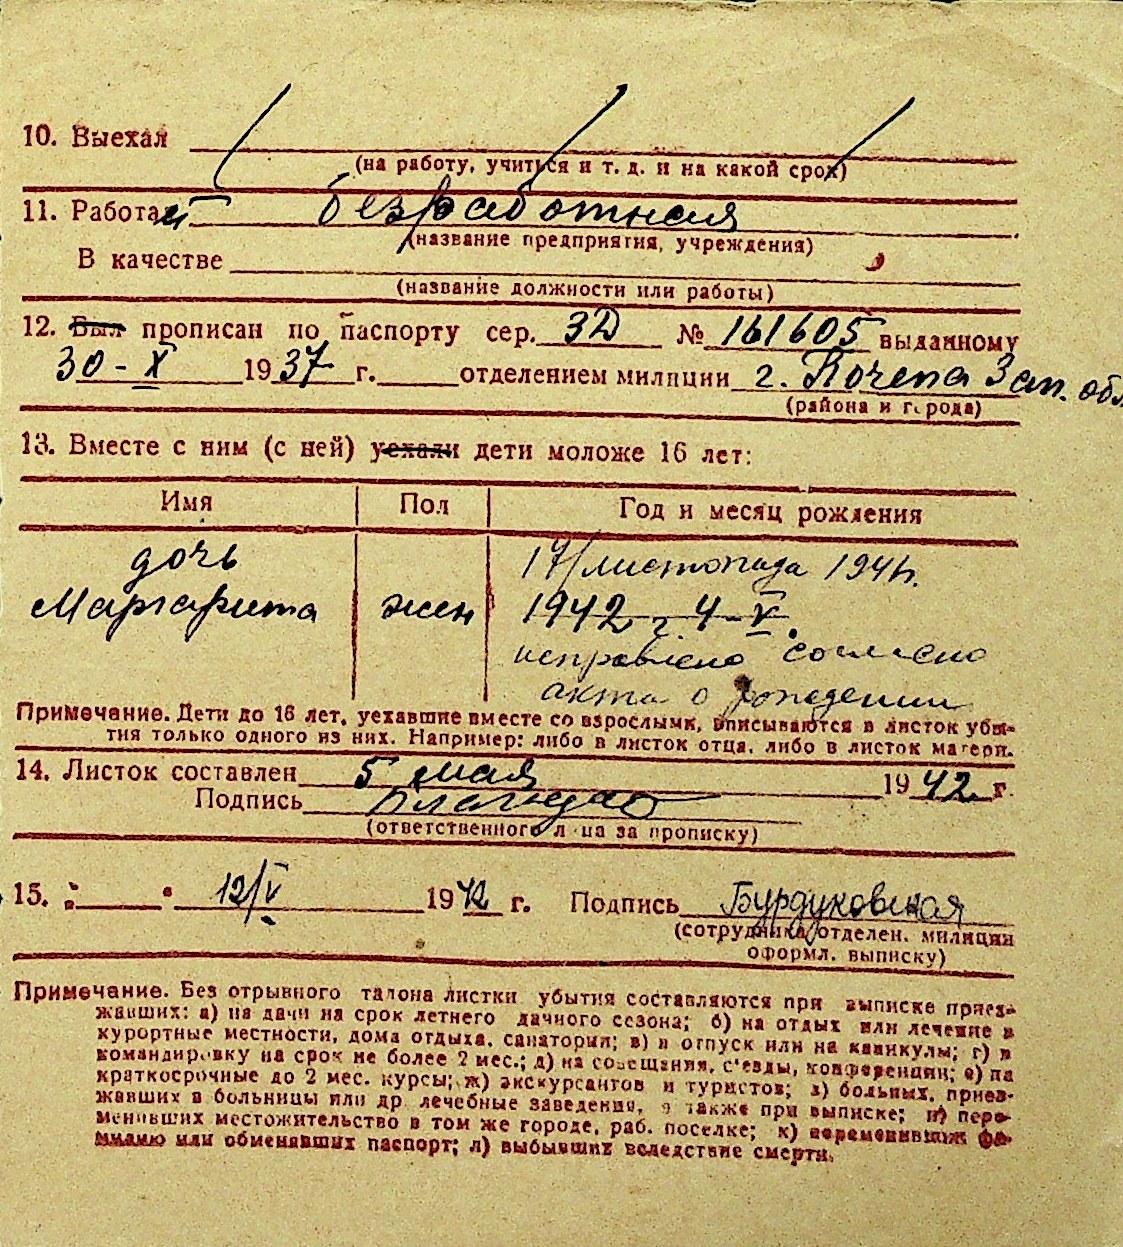 10. Выехал
(на работу, учиться и т. д. и на какой срок)
11. Работает безработная
(название предприятия, учреждения)
В качестве
(название должности или работы)
12. Был прописан по паспорту сер. ЗД № 161605 выданному
30 - X 1937 г. отделением милиции г. Почепа Зап. обл.
(района и города)
13. Вместе с ним (с ней) уехали дети моложе 16 лет:
Имя Пол Год и месяц рождения
дочь 17/листопада 1941г.
Маргарита жен 1942 г 4-V.
исправлено согласно
акта о рождении
Примечание. Дети до 16 лет, уехавшие вместе со взрослыми, вписываются в листок убы-
тия только одного из них. Например: либо в листок отца, либо в листок матери.
14. Листок составлен 5 мая 1942 г.
Подпись
(ответственного лица за прописку)
15. 12/V 1942 г. Подпись Бурдуковская
(сотрудника отделен. милиции
оформл. выписку)
Примечание. Без отрывного талона листки убытия составляются при выписке приез-
жавших: а) на дачи на срок летнего дачного сезона; б) на отдых или лечение в
курортные местности, дома отдыха, санатории; в) в отпуск или на каникулы; г) в
командировку на срок не более 2 мес.; д) на совещания, с'езды, конференции; е) на
краткосрочные до 2 мес. курсы; ж) экскурсантов и туристов; з) больных, приез-
жавших в больницы или др. лечебные заведения, а также при выписке; и) пере-
менивших местожительство в том же городе, раб. поселке; к) переменивших фа-
милию или обменявших паспорт; л) выбывших вследствие смерти.